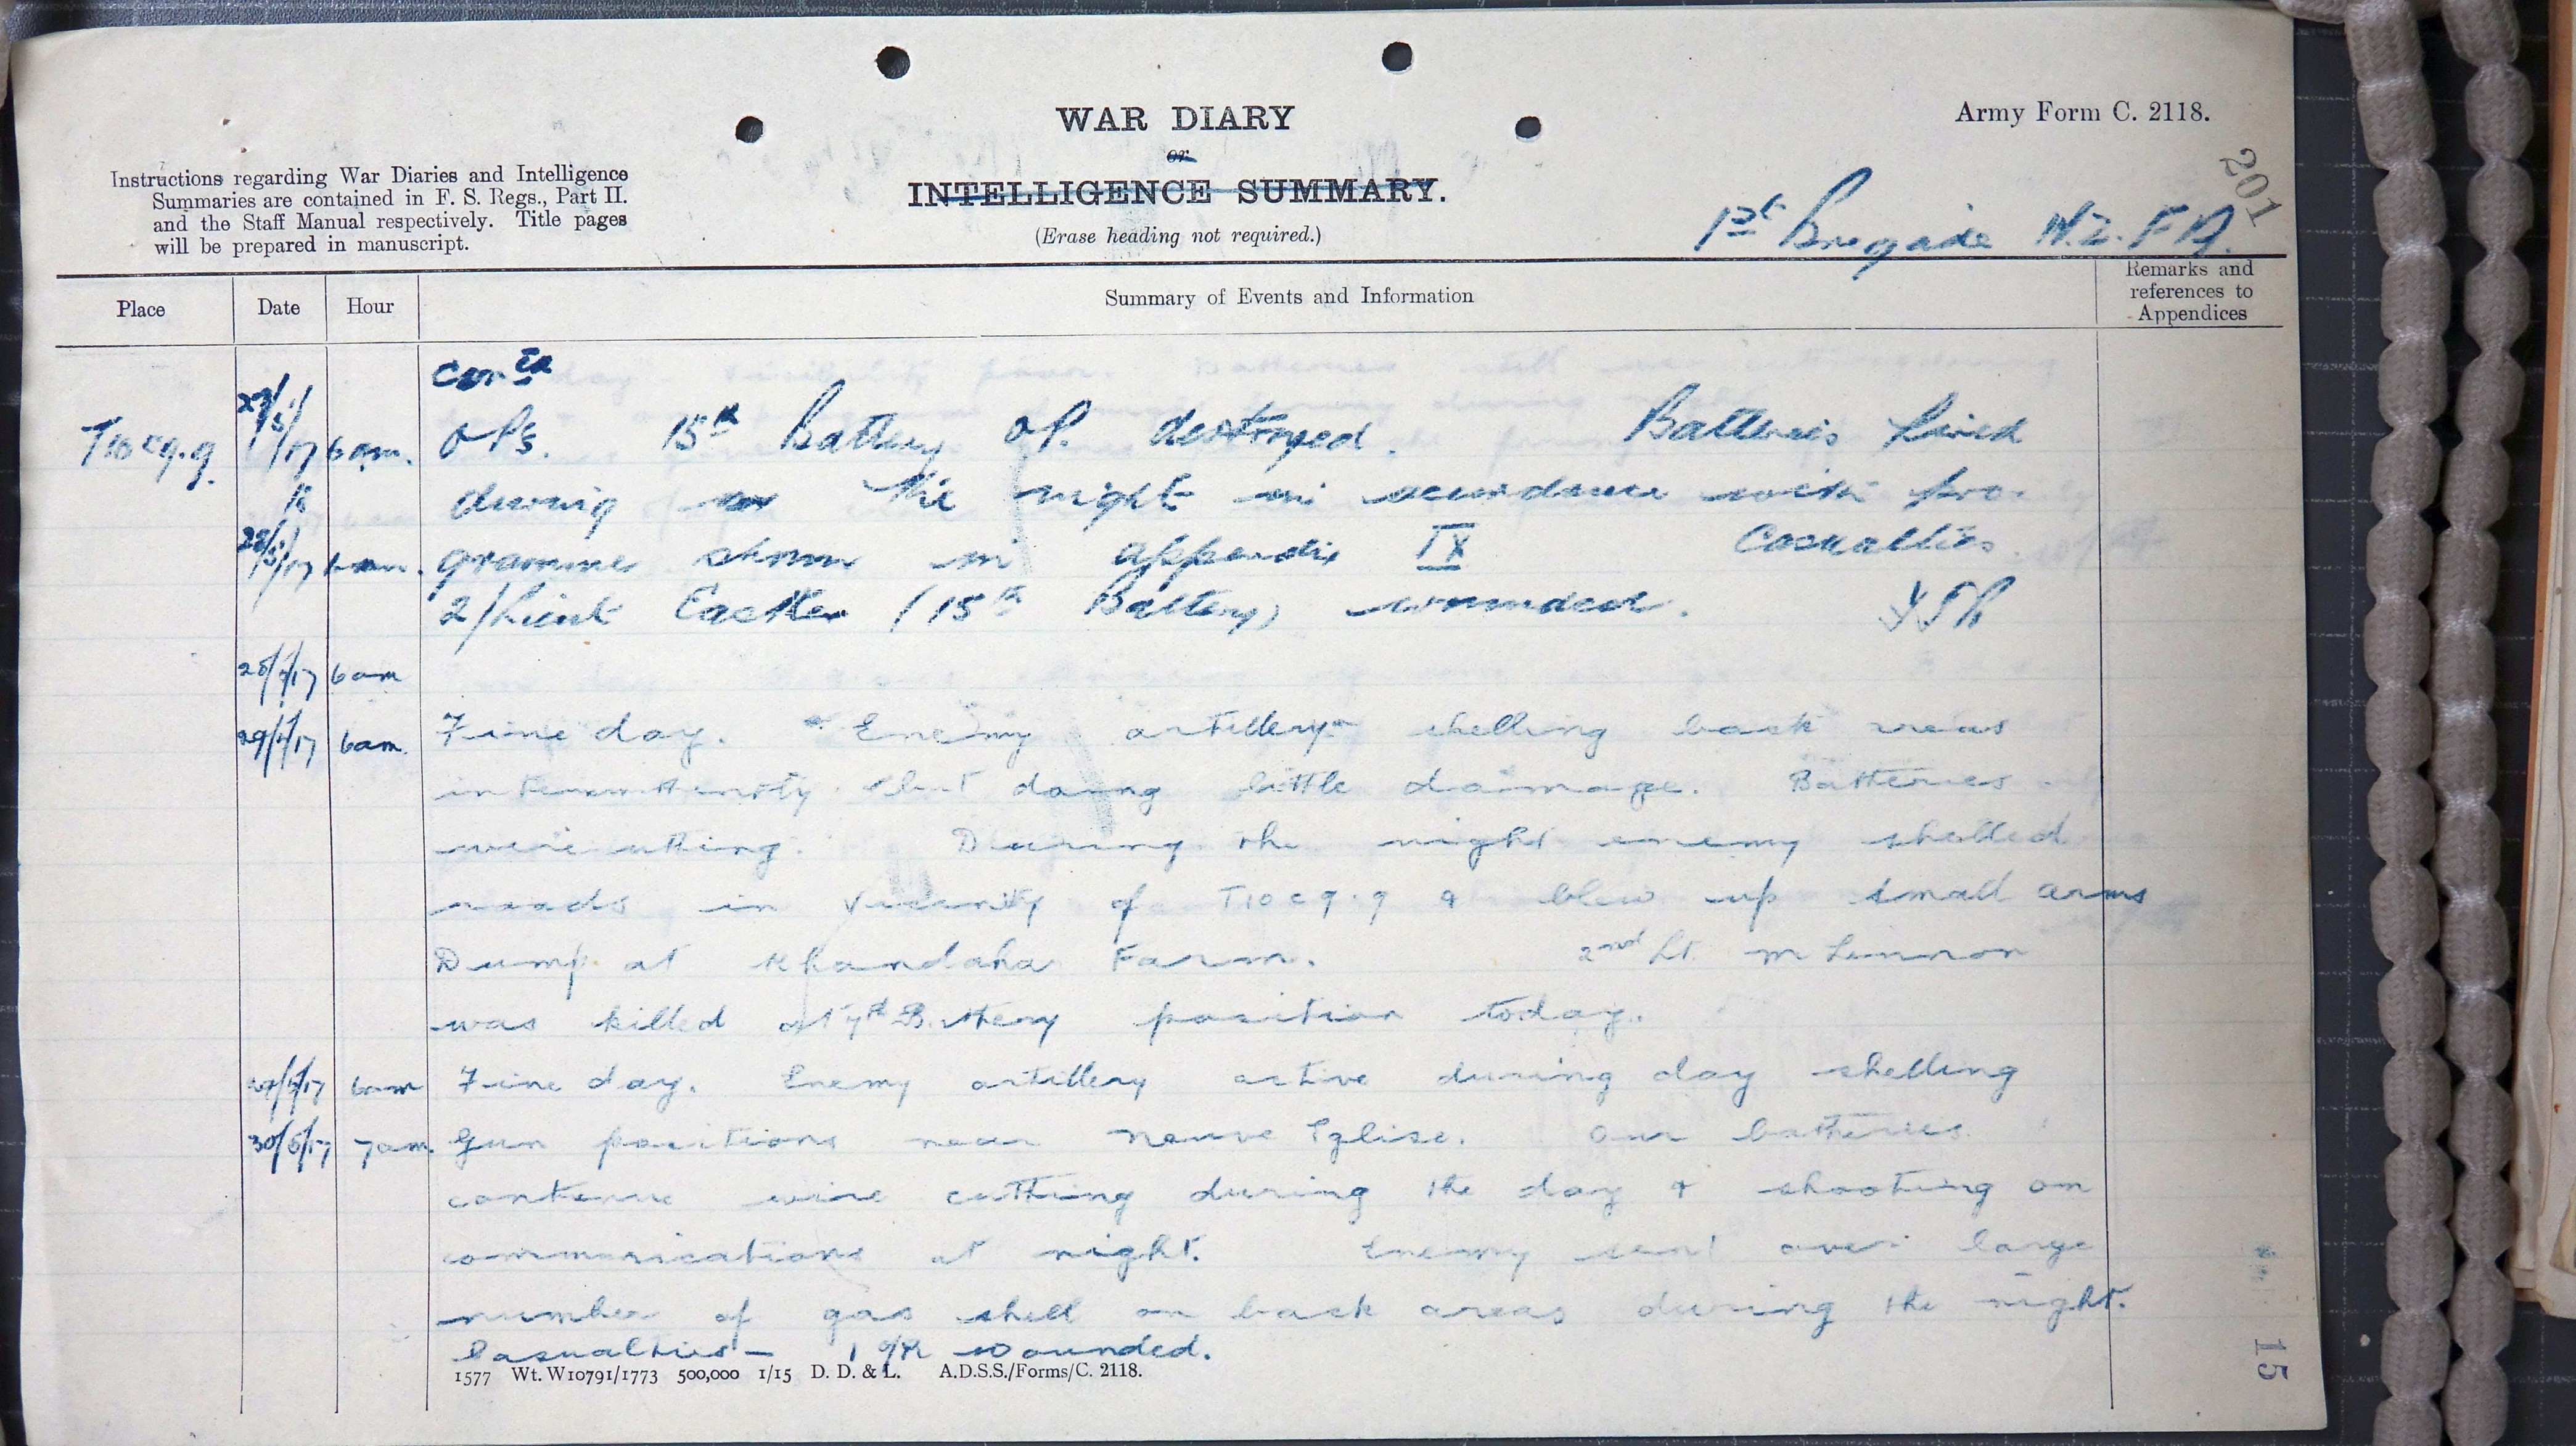 WAR DIARY
or
INTELLIGENCE SUMMARY.
(Erase heading not required.)
Army Form C. 2118.
201
Instructions regarding War Diaries and Intelligence
Summaries are contained in F. S. Regs., Part II.
and the Staff Manual respectively. Title pages
will be prepared in manuscript.
1st Brigade N.Z.F.A.
Place Date Hour Summary of Events and Information Remarks and references to Appendices
contd
T10c9.9 27/5/17 6am. OPs. 15th Battery O.P. destroyed. Batteries fired
to during the night in accordance with pro-
28/5/17 gramme shown in appendix IX Casualties.
2/Lieut (15th Battery) wounded.
28/5/17 6am
29/5/17 6am. Fine day. Enemy artillery shelling back areas
intermittently but doing little damage. Batteries
wire cutting. During the night enemy shelled
roads in vicinity of T10c9.9 & blew up small arms
Dump at Khandahar Farm. 2nd Lt. McLennon
was killed at 7th Battery position today.
29/5/17 6am Fine day. Enemy artillery active during day shelling
30/5/17 7am. Gun positions near Neuve Eglise. Our batteries
continue wire cutting during the day & shooting on
communications at night. Enemy sent over large
number of gas shell on back areas during the night.
Casualties - 1 O/R wounded.
1577 Wt. W10791/1773 500,000 1/15 D. D. & L. A.D.S.S./Forms/C. 2118.
15